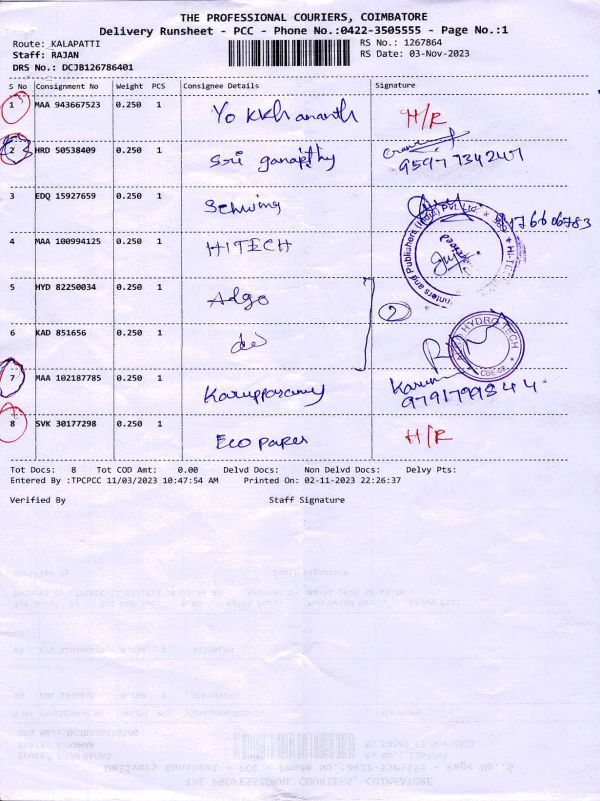 THE PROFESSIONAL COURIERS, COIMBATORE
Delivery Runsheet - PCC - Phone No.:0422-3505555 - Page No.:1
Route: KALAPATTI RS No.: 1267864
Staff: RAJAN RS Date: 03-Nov-2023
DRS No.: DCJB126786401
S No Consignment No Weight PCS Consignee Details Signature
1 MAA 943667523 0.250 1 H/R
2 HRD 50538409 0.250 1 Sri ganapthy
3 EDQ 15927659 0.250 1 Schwing
4 MAA 100994125 0.250 1 HITECH
5 HYD 82250034 0.250 1 Adgo
6 KAD 851656 0.250 1 do 2
HYDRO TECH
7 MAA 102187785 0.250 1 Karupparamy
8 SVK 30177298 0.250 1 Eco paper H/R
Tot Docs: 8 Tot COD Amt: 0.00 Delvd Docs: Non Delvd Docs: Delvy Pts:
Entered By :TPCPCC 11/03/2023 10:47:54 AM Printed On: 02-11-2023 22:26:37
Verified By Staff Signature